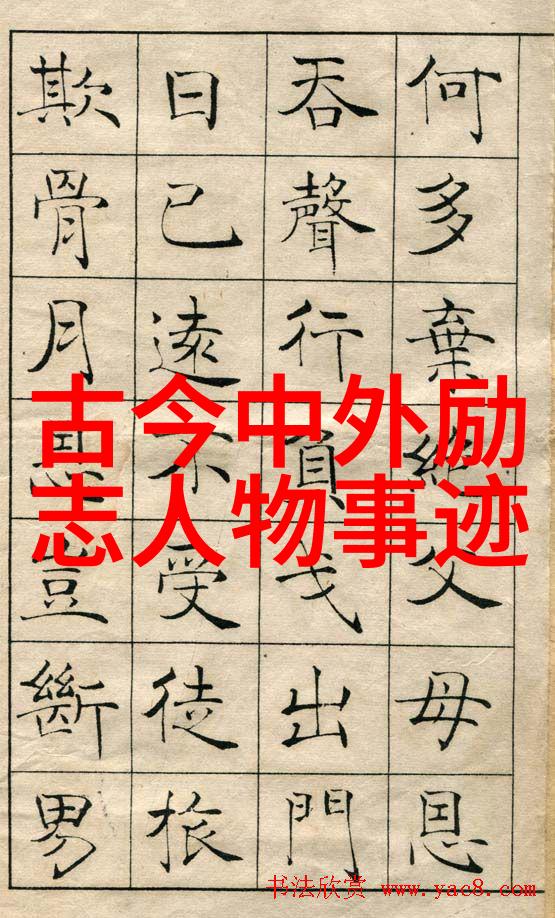 何多棄絕父母恩
吞聲行負戈出門
日已遠不受徒旅
欺骨月恩豈斷男
古今中外励
志人物事迹
书法欣赏 www.yac8.com